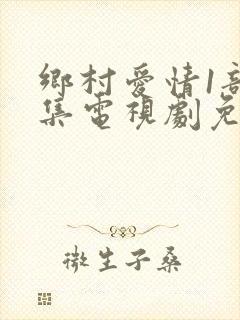 鄉村愛情1部
集電視劇免
微生子桑